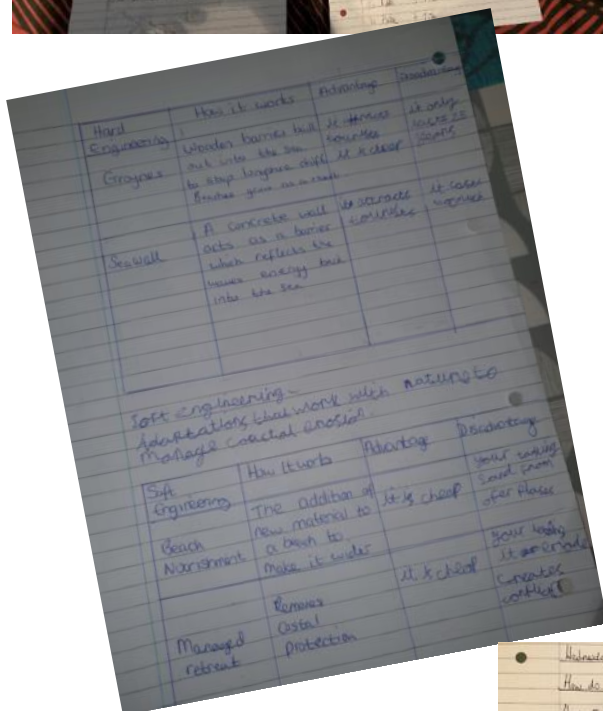 Hard Engineering
How it works
Advantage
Disadvantage
Groynes
Wooden barrier built
out into the sea
to stop longshore drift
Beaches grow as a result
it attracts
tourists
it is cheap
it only
lasts 25
years
Sea wall
A concrete wall
acts as a barrier
which reflects the
waves energy back
into the sea
it attracts
tourists
it costs
Soft engineering -
Adaptations that work with nature to
manage coastal erosion.
Soft
Engineering
How it works
Advantage
Disadvantage
Beach
Nourishment
The addition of
new material to
a beach to
make it wider
it is cheap
your taking
sand from
ofer places
Managed
retreat
Removes
Costal
protection
it is cheap
your
it
Creates
conflict
How do